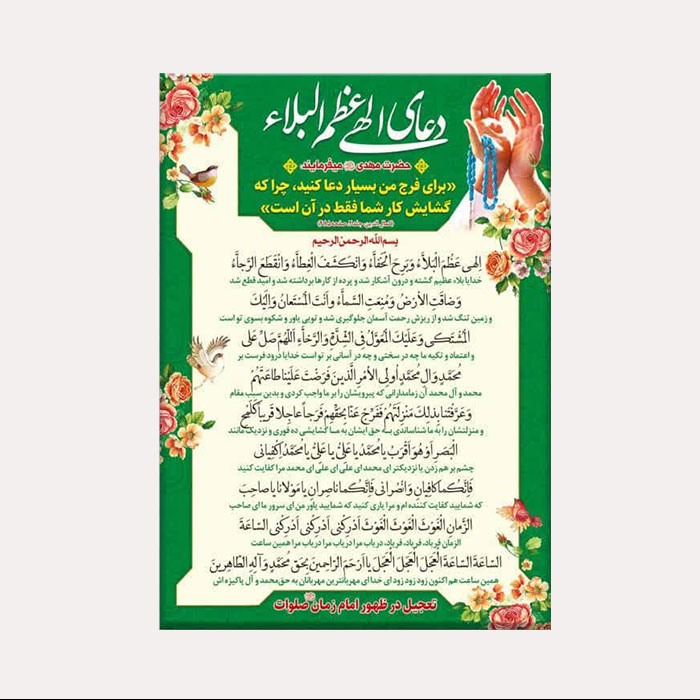 دعای الهی عظم البلاء
حضرت مهدی میفرمایند
«برای فرج من بسیار دعا کنید، چرا که
گشایش کار شما فقط در آن است»
بسم الله الرحمن الرحیم
اِلهی عَظُمَ الْبَلاَّءُ وَبَرِحَ الْخَفاَّءُ وَانْکَشَفَ الْغِطاَّءُ وَانْقَطَعَ الرَّجاَّءُ
خدایا بلاء عظیم گشته و درون آشکار شد و پرده از کارها برداشته شد و امید قطع شد
وَضاقَتِ الاْرْضُ وَمُنِعَتِ السَّماَّءُ واَنْتَ الْمُسْتَعانُ وَاِلَیْکَ
و زمین تنگ شد و از ریزش رحمت آسمان جلوگیری شد و تویی یاور و شکوه بسوی تو است
الْمُشْتَکی وَعَلَیْکَ الْمُعَوَّلُ فِی الشِّدَّةِ وَالرَّخاَّءِ اَللّهُمَّ صَلِّ عَلی
و اعتماد و تکیه ما چه در سختی و چه در آسانی بر تو است خدایا درود فرست بر
مُحَمَّدٍ وَالِ مُحَمَّدٍ اُولِی الاْمْرِ الَّذینَ فَرَضْتَ عَلَیْنا طاعَتَهُمْ
محمد و آل محمد آن زمامدارانی که پیرویشان را بر ما واجب کردی و بدین سبب مقام
وَعَرَّفْتَنا بِذلِکَ مَنْزِلَتَهُمْ فَفَرِّجْ عَنّا بِحَقِّهِمْ فَرَجاً عاجِلا قَریباً کَلَمْحِ
و منزلتشان را به ما شناساندی به حق ایشان به ما گشایشی ده فوری و نزدیک مانند
الْبَصَرِ اَوْ هُوَ اَقْرَبُ یا مُحَمَّدُ یا عَلِیُّ یا عَلِیُّ یا مُحَمَّدُ اِکْفِیانی
چشم بر هم زدن یا نزدیکتر ای محمد ای علی ای علی ای محمد مرا کفایت کنید
فَاِنَّکُما کافِیانِ وَانْصُرانی فَاِنَّکُما ناصِرانِ یا مَوْلانا یا صاحِبَ
که شمایید کفایت کننده ام و مرا یاری کنید که شمایید یاور من ای سرور ما ای صاحب
الزَّمانِ الْغَوْثَ الْغَوْثَ الْغَوْثَ اَدْرِکْنی اَدْرِکْنی اَدْرِکْنی السّاعَةَ
الزمان فریاد، فریاد، فریاد، دریاب مرا دریاب مرا دریاب مرا همین ساعت
السّاعَةَ السّاعَةَ الْعَجَلَ الْعَجَلَ الْعَجَلَ یا اَرْحَمَ الرّاحِمینَ بِحَقِّ مُحَمَّدٍ وَآلِهِ الطّاهِرینَ
همین ساعت هم اکنون زود زود زود ای خدا ای مهربانترین مهربانان به حق محمد و آل پاکیزه اش
تعجیل در ظهور امام زمان صلوات